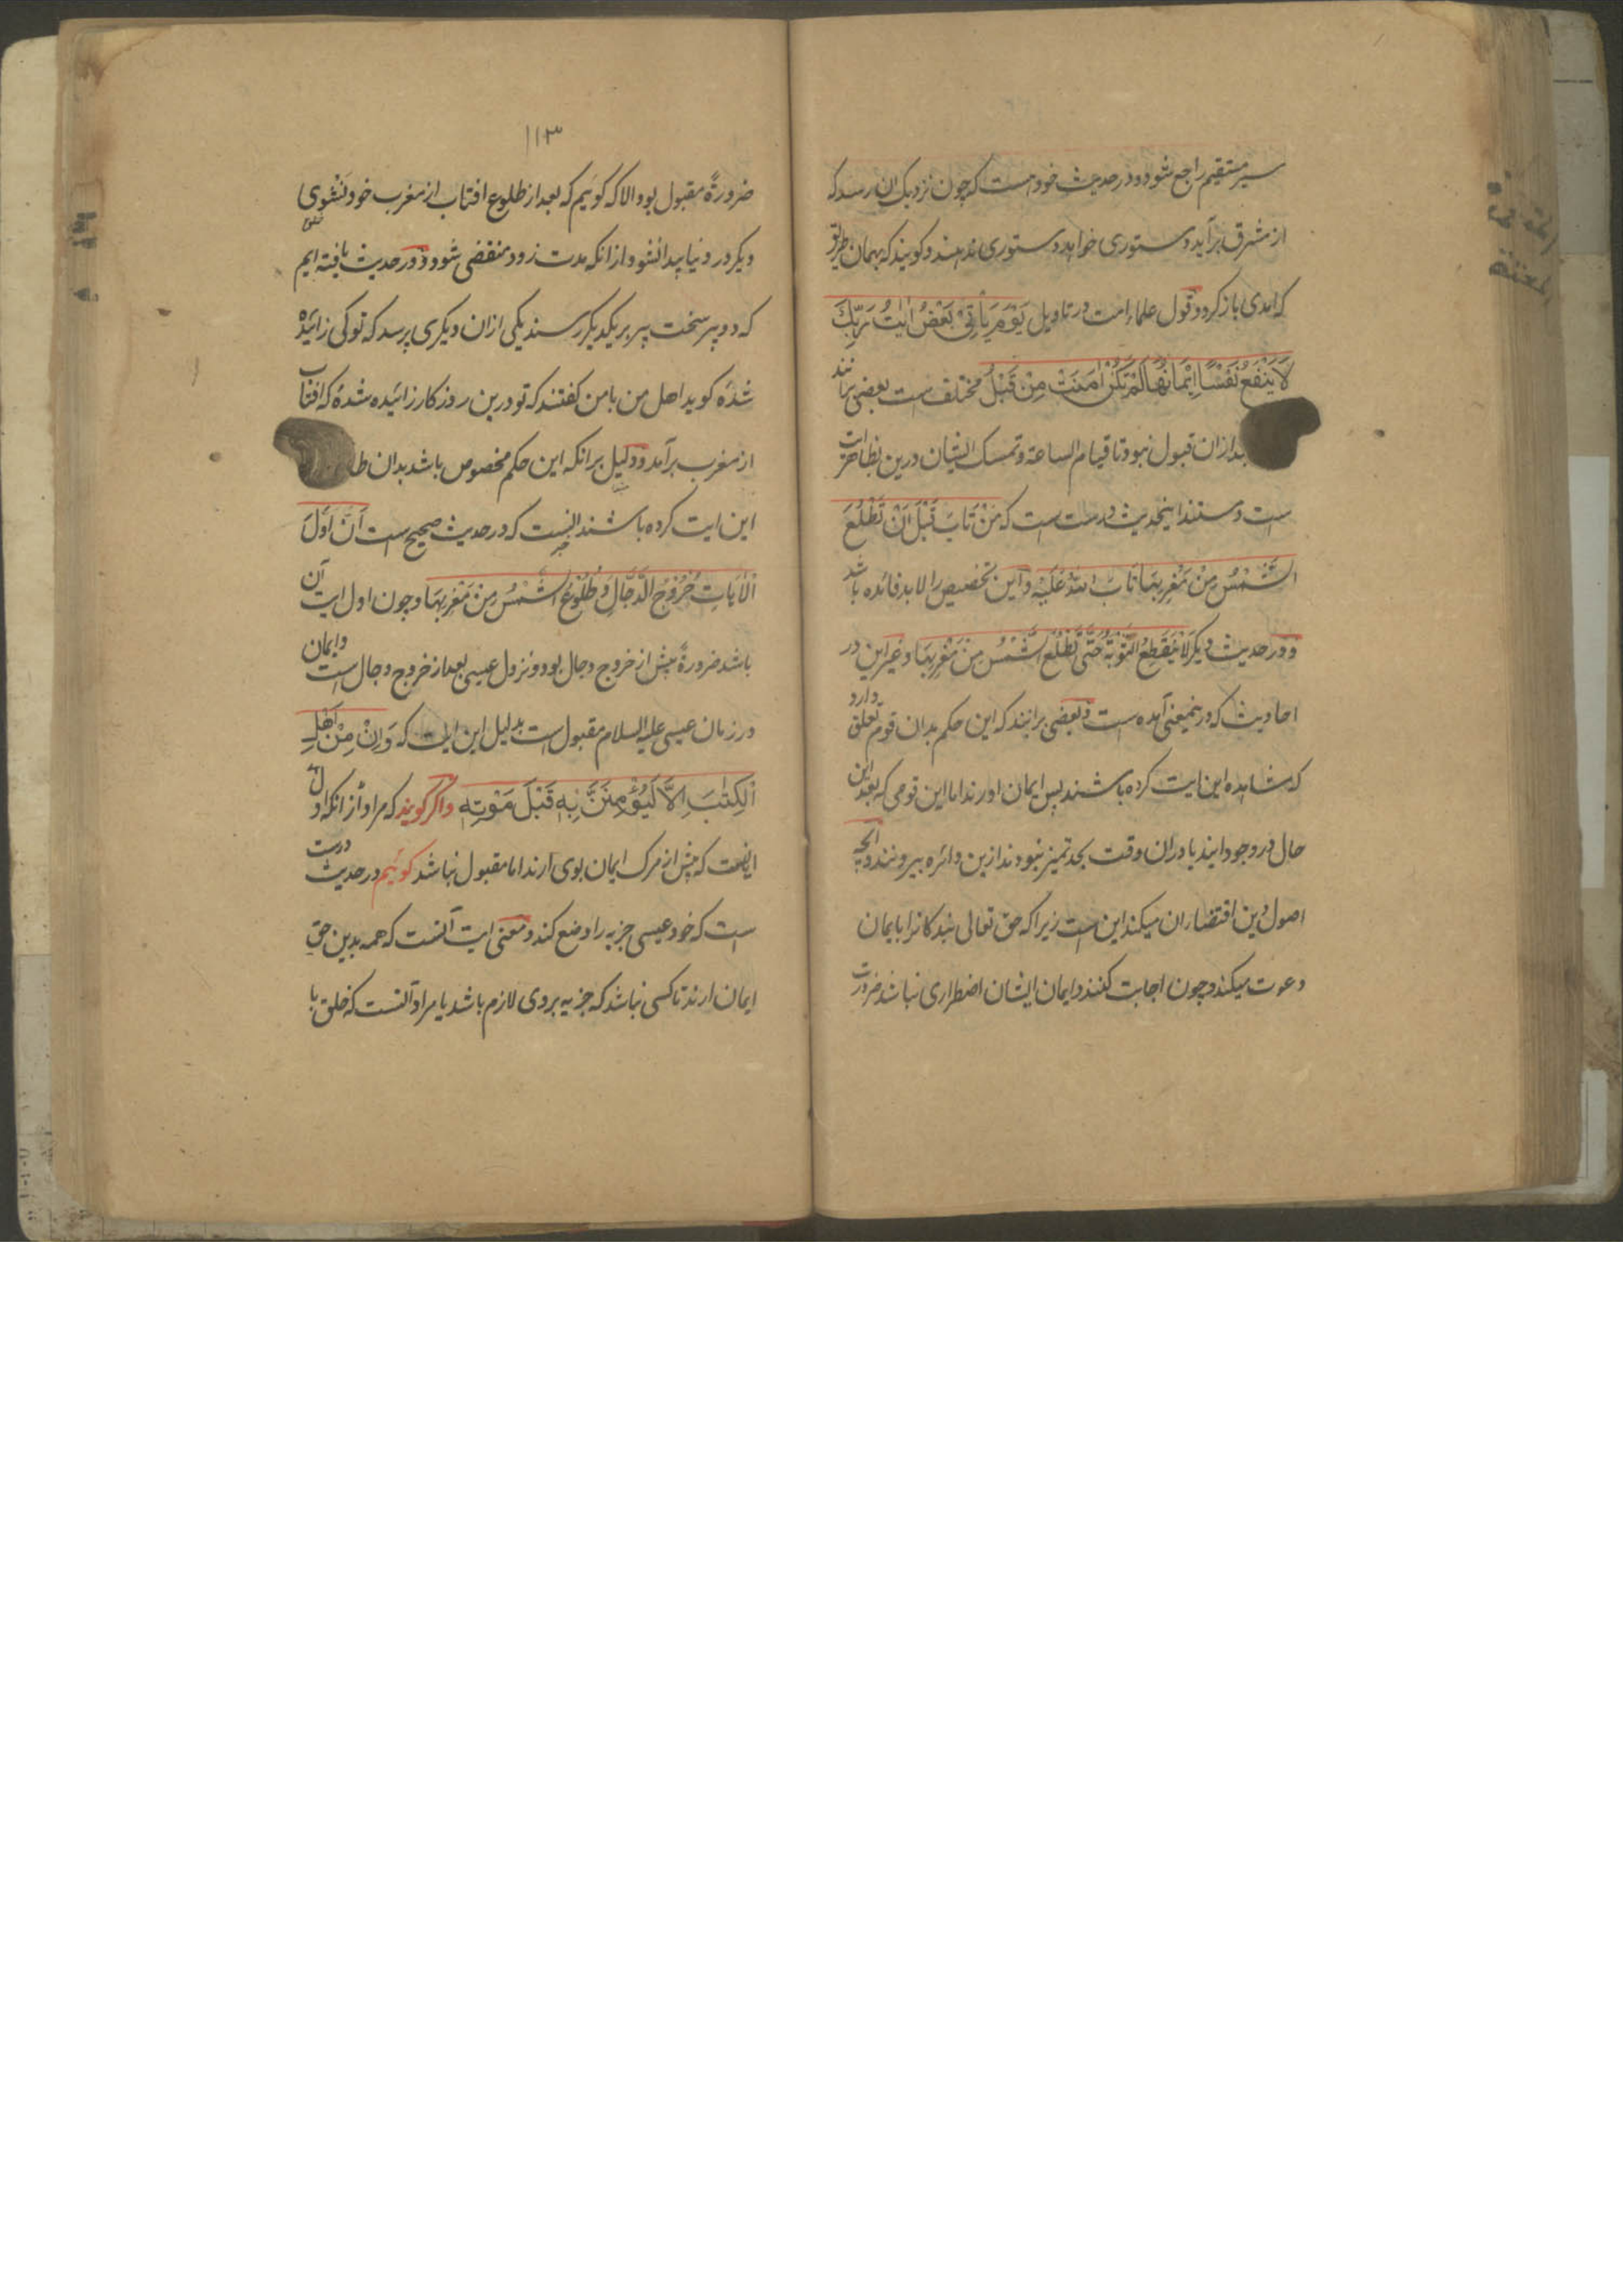 سیر مستقیم راجع شود و در حدیث خود هست که چون نزدیک ان رسد که
از مشرق برآید دستوری خواهد دستوری ندهند و کویند که بهمان طریق
که امدی باز کرد و قول علماء امت در تاویل یَوْمَ یَأْتِیْ بَعْضُ اٰیٰتِ رَبِّكَ
لَا یَنْفَعُ نَفْسًا اِیْمَانُهَا لَمْ تَكُنْ اٰمَنَتْ مِنْ قَبْلُ مختلف است بعضی برانند
بعد ازان قبول نبود تا قیام الساعة و تمسک ایشان درین بظاهر ایات
است و مستند اینحدیث درست است که مَنْ تَابَ قَبْلَ اَنْ تَطْلُعَ
الشَّمْسُ مِنْ مَغْرِبِهَا تَابَ اللهُ عَلَیْهِ و این تخصیص را لابد فائده باشد
و در حدیث دیکر لَا یَنْقَطِعُ التَّوْبَةُ حَتّٰی تَطْلُعَ الشَّمْسُ مِنْ مَغْرِبِهَا و غیر این در
احادیث که درینمعنی آمده است و بعضی برانند که این حکم بدان قوم تعلق دارد
که مشاهده این ایت کرده باشند پس ایمان اورند اما این قومی که بعد این
حال در وجود ایند یا دران وقت بحد تمیز نبودند ازین دائره بیرونند و انچه
اصول دین اقتضاء ان میکند این است زیرا که حق تعالی بندکانرا بایمان
دعوت میکند و چون اجابت کنند و ایمان ایشان اضطراری نباشد ضرورت
۱۱۳
ضرورةً مقبول بود والا که کوئیم که بعد از طلوع افتاب از مغرب خود نشوی
دیکر در دنیا پیدا نشود از انکه مدت زود منقضی شود و در حدیث یافته ایم
که دو پیر سخت پیر بریکدیکر رسند یکی ازان دیکری پرسد که تو کی زائیده
شدهٔ کوید اهل من با من کفتند که تو درین روزکار زائیده شدهٔ که افتاب
از مغرب برآمد و دلیل برانکه این حکم مخصوص باشد بدان
این ایت کرده باشند انست که در حدیث صحیح است اَنَّ اَوَّلَ
الْاٰیَاتِ خُرُوْجُ الدَّجَّالِ وَ طُلُوْعُ الشَّمْسِ مِنْ مَغْرِبِهَا و چون اول ایت آن
باشد ضرورةً پیش از خروج دجال بود و نزول عیسی بعد از خروج دجال است و ایمان
در زمان عیسی علیه السلام مقبول است بدلیل این ایت که وَاِنْ مِنْ اَهْلِ
الْكِتٰبِ اِلَّا لَیُؤْمِنَنَّ بِهٖ قَبْلَ مَوْتِهٖ و اکر کویند که مراد از انکه
اینست که پیش از مرک ایمان بوی آرند اما مقبول نباشد کوئیم در حدیث درست
است که خود عیسی جزیه را وضع کند و معنی ایت آنست که همه بدین حق
ایمان ارند تا کسی نباشد که جزیه بر وی لازم باشد یا مراد آنست که خلق با